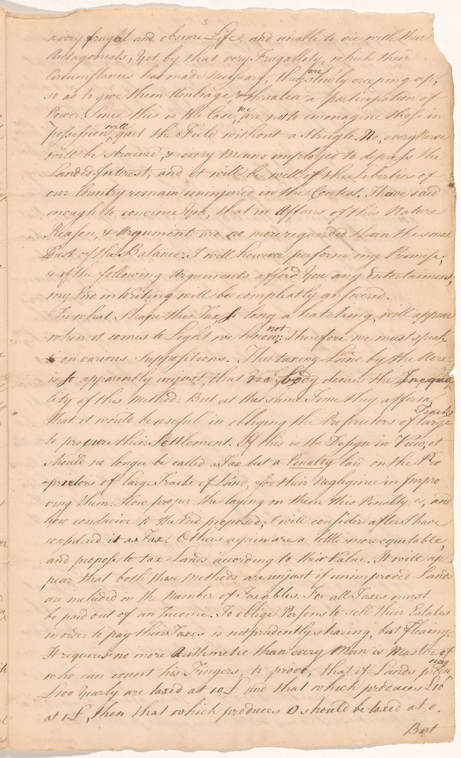 3
a very frugal and obscure Life, and unable to vie with their
Antagonists, Yet by that very Frugality, which their
Circumstances has made necessary, they are slowly creeping up,
so as to give them Umbrage, & threaten a participation of
Power. Since this is the Case, we are not to imagine those in
possession will quit the Field without a Struggle. No, every Nerve
will be strained, & every Means employed to depress the
Landed Interest, and it will be well if the Liberties of
our Country remain uninjured in the Contest. I have said
enough to convince You, that in Affairs of this Nature
Reason, & Argument are no more regarded than the small
Dust of the Balance. I will however perform my Promise,
& if the following Arguments afford You any Entertainment,
my End in Writing will be compleatly answered.
In what Shape this Tax, so long a hatching, will appear
when it comes to Light we know not, therefore we must speak
to on various Suppositions. The taxing Land by the Acre
is so apparently unjust that no body denies the Inequa
lity of this Method. But at the same Time they affirm,
that it would be useful in obliging the Proprietors of large Tracts
to procure their Settlement. If this is the Design in View, it
should no longer be called a Tax but a Penalty laid on the Pro
prietors of large Tracts of Land, for their Negligence in Impro
ving them. How proper the laying on them this Penalty is, and
how conducive to the End proposed, I will consider after I have
considered it as Tax. Others again are a little more equitable,
and propose to tax Lands according to their Value. It will ap
pear that both these Methods are unjust if unimproved Lands
are included in the Number of Taxables. For all Taxes must
be paid out of an Income. To oblige Persons to sell their Estates
in order to pay their Taxes is not prudently shearing, but fleaing.
It requires no more Arithmetic than every Man is Master of
who can count his Fingers, to prove, that if Lands produce
£100 Yearly are taxed at 10£, and that which produces £10
at 1£, then that which produces 0 should be taxed at 0.
But